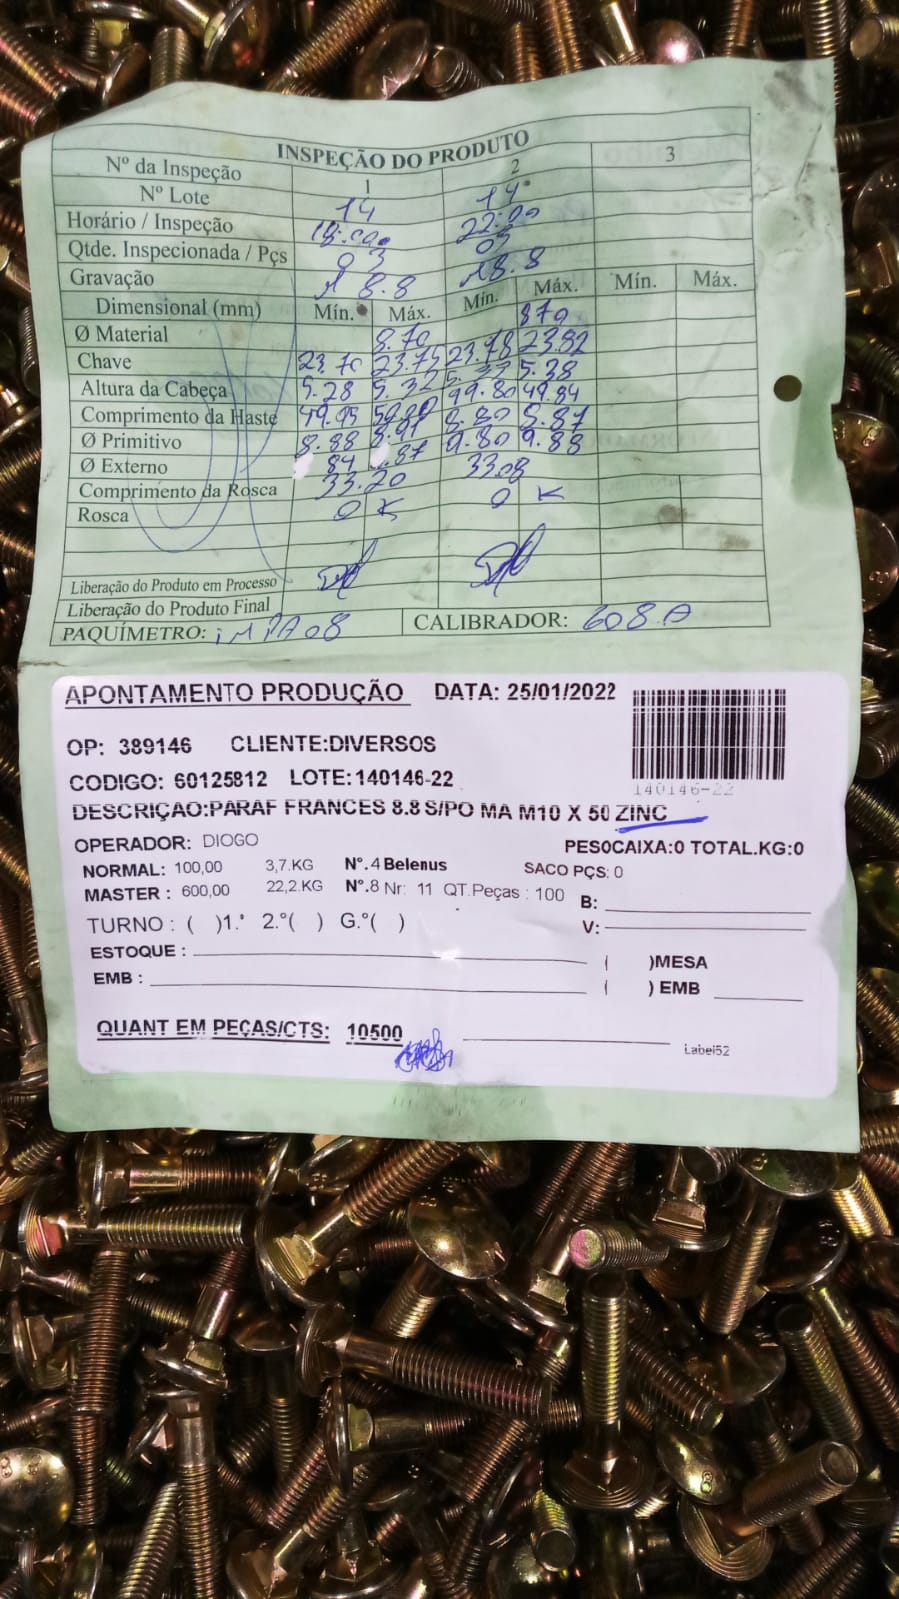 INSPEÇÃO DO PRODUTO
Nº da Inspeção 1 2 3
Nº Lote 14 14
Horário / Inspeção 22:00
Qtde. Inspecionada / Pçs 03 03
Gravação 8.8 8.8
Dimensional (mm) Mín. Máx. Mín. Máx. Mín. Máx.
Ø Material 8.70 870
Chave 23.70 23.75 23.78 23.82
Altura da Cabeça 5.28 5.32 5.38
Comprimento da Haste 49.95 49.84
Ø Primitivo 8.88 8.91 8.80 8.87
Ø Externo 84 87 9.80 9.88
Comprimento da Rosca 33.20 3308
Rosca OK OK
Liberação do Produto em Processo
Liberação do Produto Final
PAQUÍMETRO: CALIBRADOR: 608 A
APONTAMENTO PRODUÇÃO DATA: 25/01/2022
OP: 389146 CLIENTE:DIVERSOS
CODIGO: 60125812 LOTE:140146-22
140146-22
DESCRIÇAO:PARAF FRANCES 8.8 S/PO MA M10 X 50 ZINC
OPERADOR: DIOGO PESOCAIXA:0 TOTAL.KG:0
NORMAL: 100,00 3,7.KG Nº.4 Belenus SACO PÇS: 0
MASTER : 600,00 22,2.KG Nº.8 Nr: 11 QT.Peças : 100 B:
TURNO : ( )1.° 2.°( ) G.°( ) V:
ESTOQUE : ( )MESA
EMB : ( ) EMB
QUANT EM PEÇAS/CTS: 10500
Label52